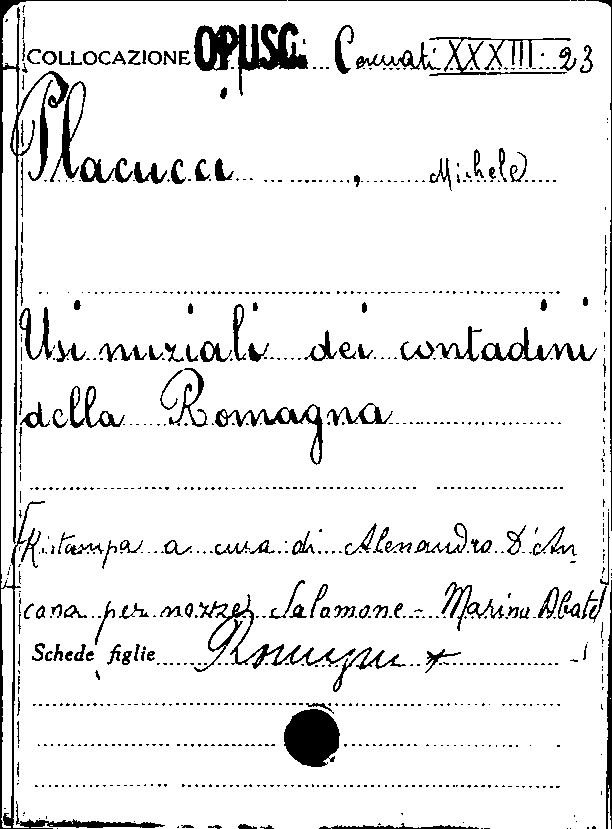 COLLOCAZIONE OPUSC. Comuati XXXIII. 23
Placucci, Michele
Usi nuziali dei contadini
della Romagna
[Ristampa a cura di Alessandro D'An-
cona per nozze Salomone - Marino Abate]
Schede figlie Romagna